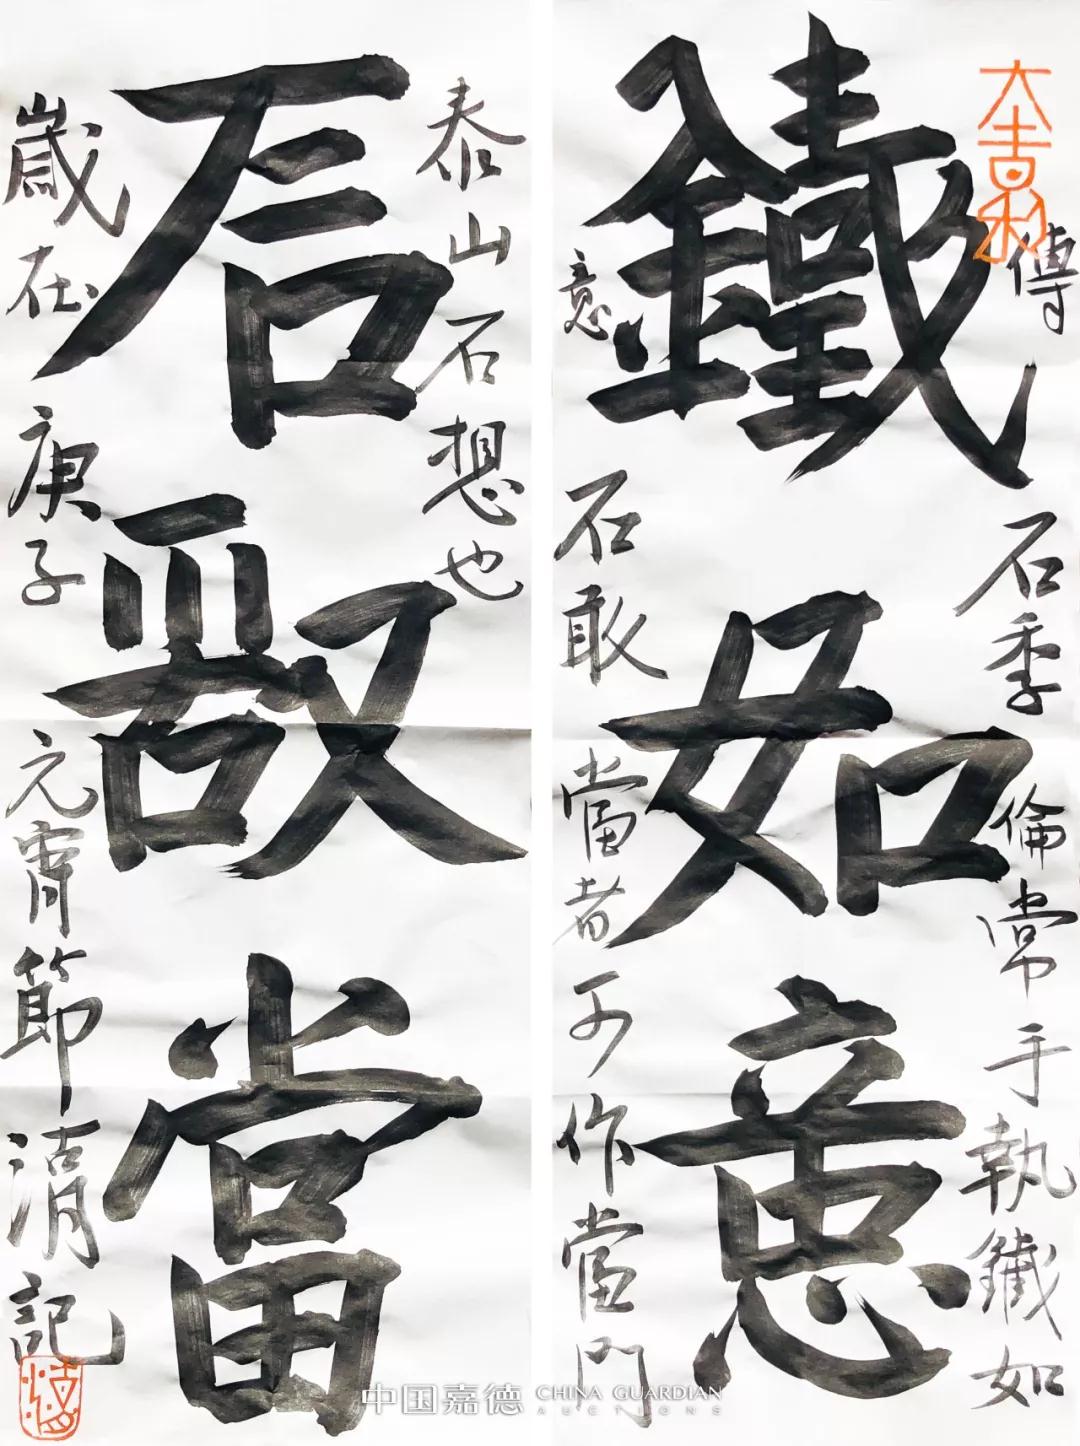 大吉利
傳石季倫常手執鐵如
鐵如意
意石敢當者可作當門
泰山石想也
石敢當
歲在庚子元宵節湖記
中国嘉德 CHINA GUARDIAN
AUCTIONS